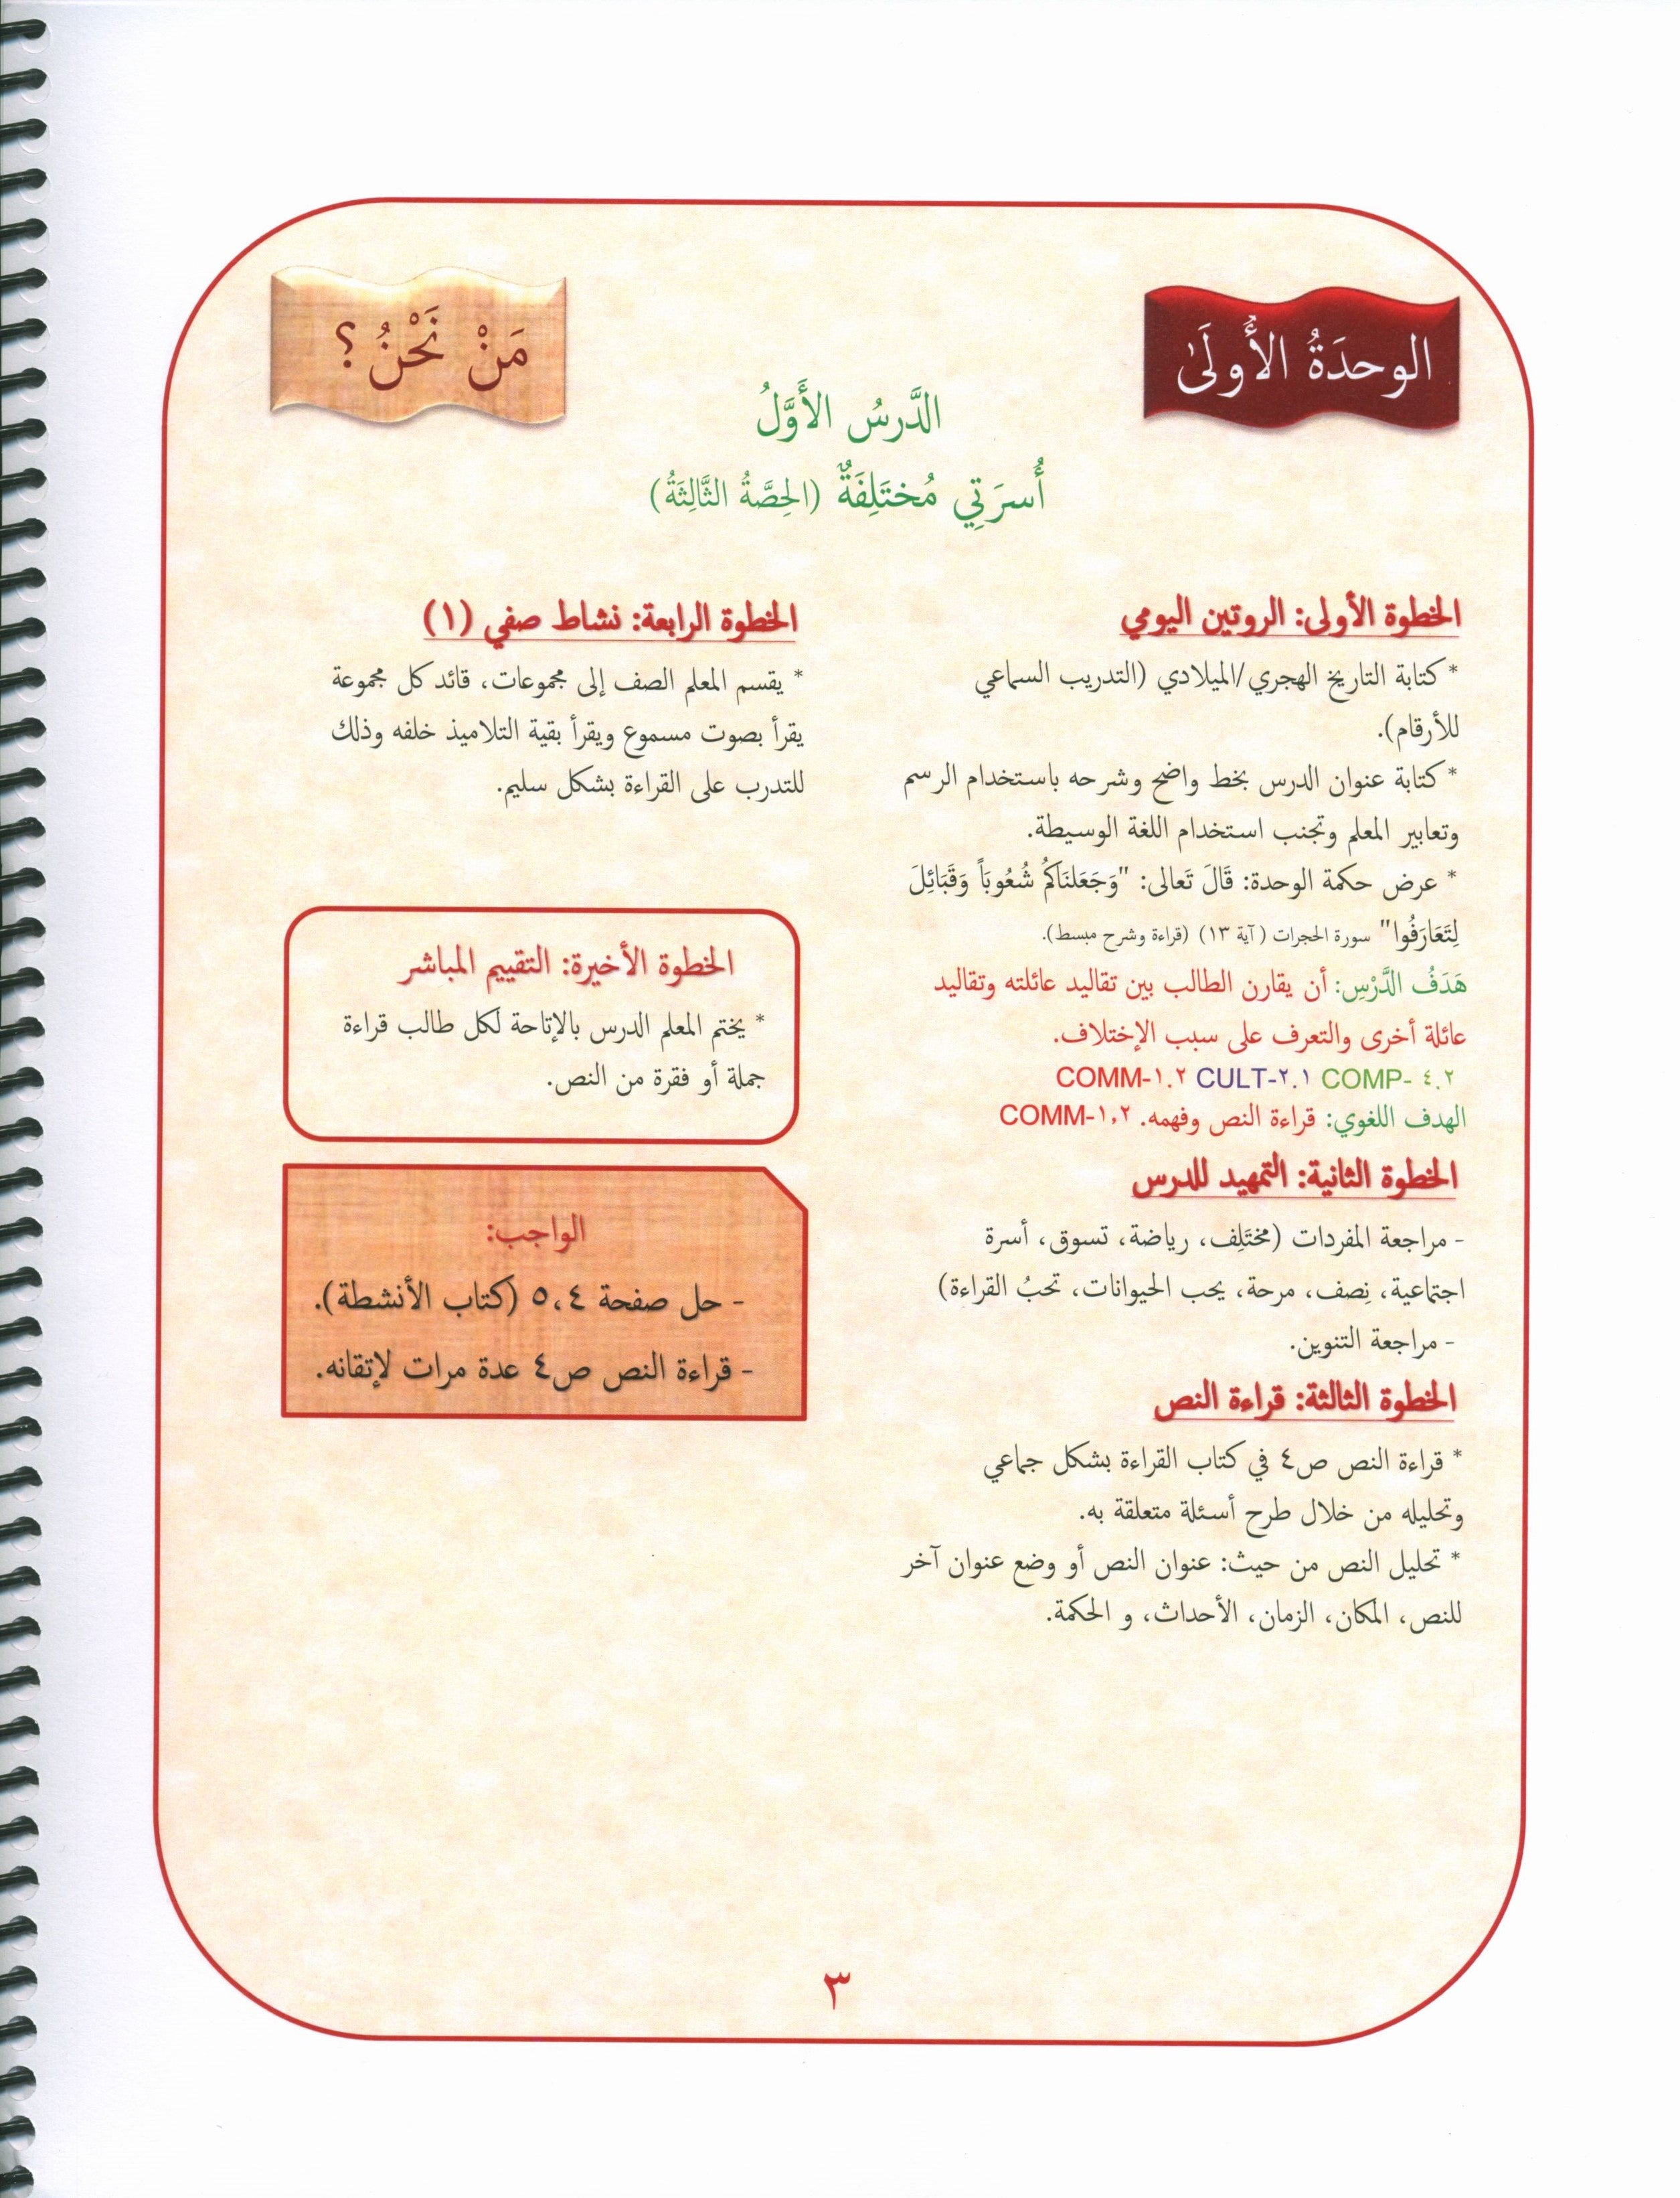 الوحدَةُ الأُولَىٰ
مَنْ نَحْنُ ؟
الدَّرسُ الأَوَّلُ
أُسرَتِي مُختَلِفَةٌ (الحِصَّةُ الثَّالِثَةُ)
الخطوة الأولى: الروتين اليومي
* كتابة التاريخ الهجري/الميلادي (التدريب السماعي
للأرقام).
* كتابة عنوان الدرس بخط واضح وشرحه باستخدام الرسم
وتعابير المعلم وتجنب استخدام اللغة الوسيطة.
* عرض حكمة الوحدة: قَالَ تَعالى: "وَجَعَلنَاكُمْ شُعُوبَاً وَقَبَائِلَ
لِتَعَارَفُوا" سورة الحجرات (آية ١٣) (قراءة وشرح مبسط).
هَدَفُ الدَّرْسِ: أن يقارن الطالب بين تقاليد عائلته وتقاليد
عائلة أخرى والتعرف على سبب الإختلاف.
COMM-١.٢ CULT-٢.١ COMP- ٤.٢
الهدف اللغوي: قراءة النص وفهمه. COMM-١,٢
الخطوة الثانية: التمهيد للدرس
- مراجعة المفردات (مختَلِف، رياضة، تسوق، أسرة
اجتماعية، نِصف، مرحة، يحب الحيوانات، تحبُ القراءة)
- مراجعة التنوين.
الخطوة الثالثة: قراءة النص
* قراءة النص ص٤ في كتاب القراءة بشكل جماعي
وتحليله من خلال طرح أسئلة متعلقة به.
* تحليل النص من حيث: عنوان النص أو وضع عنوان آخر
للنص، المكان، الزمان، الأحداث، و الحكمة.
الخطوة الرابعة: نشاط صفي (١)
* يقسم المعلم الصف إلى مجموعات، قائد كل مجموعة
يقرأ بصوت مسموع ويقرأ بقية التلاميذ خلفه وذلك
للتدرب على القراءة بشكل سليم.
الخطوة الأخيرة: التقييم المباشر
* يختم المعلم الدرس بالإتاحة لكل طالب قراءة
جملة أو فقرة من النص.
الواجب:
- حل صفحة ٤،٥ (كتاب الأنشطة).
- قراءة النص ص٤ عدة مرات لإتقانه.
٣